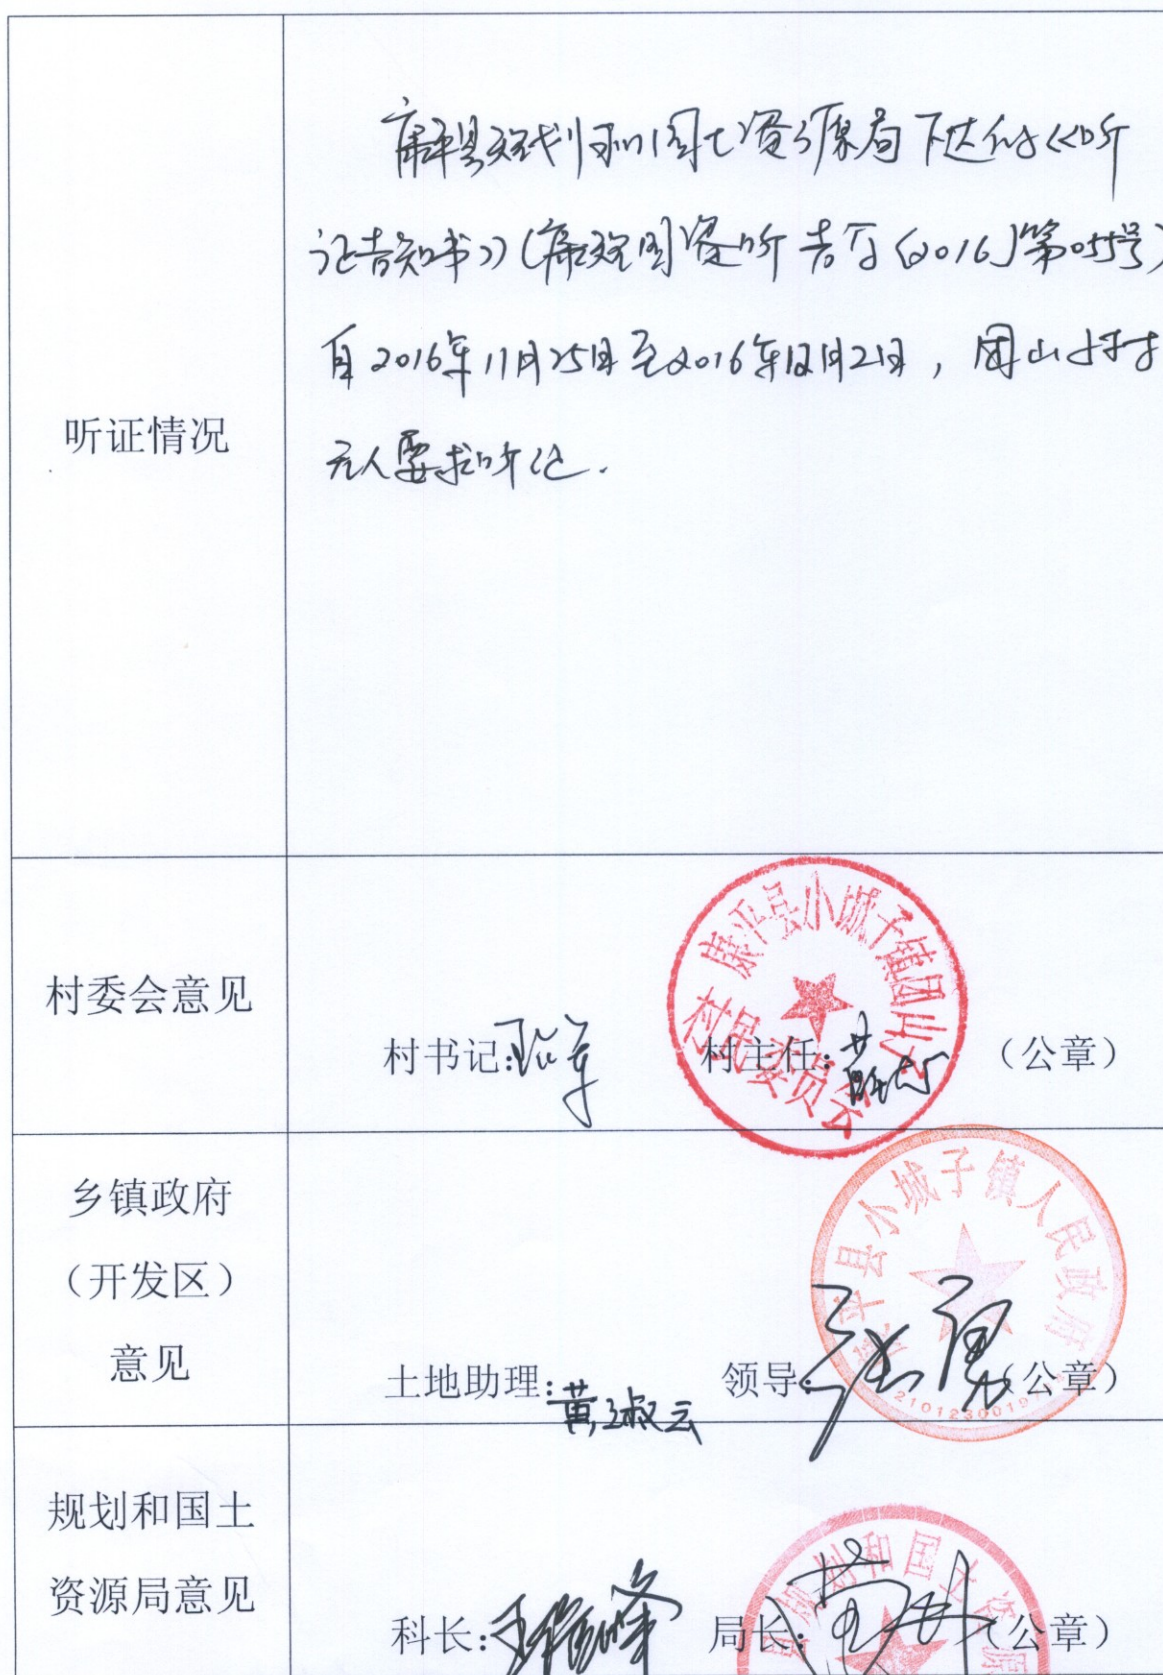 康平县规划和国土资源局下达的《听
证告知书》(康规国资听告字〔2016〕第055号)
自2016年11月25日至2016年12月2日，团山子村
无人要求听证.
听证情况
村委会意见
村书记:
村主任:
（公章）
康平县小城子镇团山子
村民委员会
乡镇政府
（开发区）
意见
土地助理:黄淑云
领导:张勇
（公章）
康平县小城子镇人民政府
规划和国土
资源局意见
科长:
局长:
（公章）
县规划和国土资源